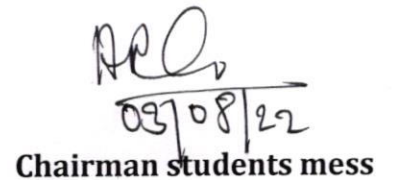 03/08/22
Chairman students mess